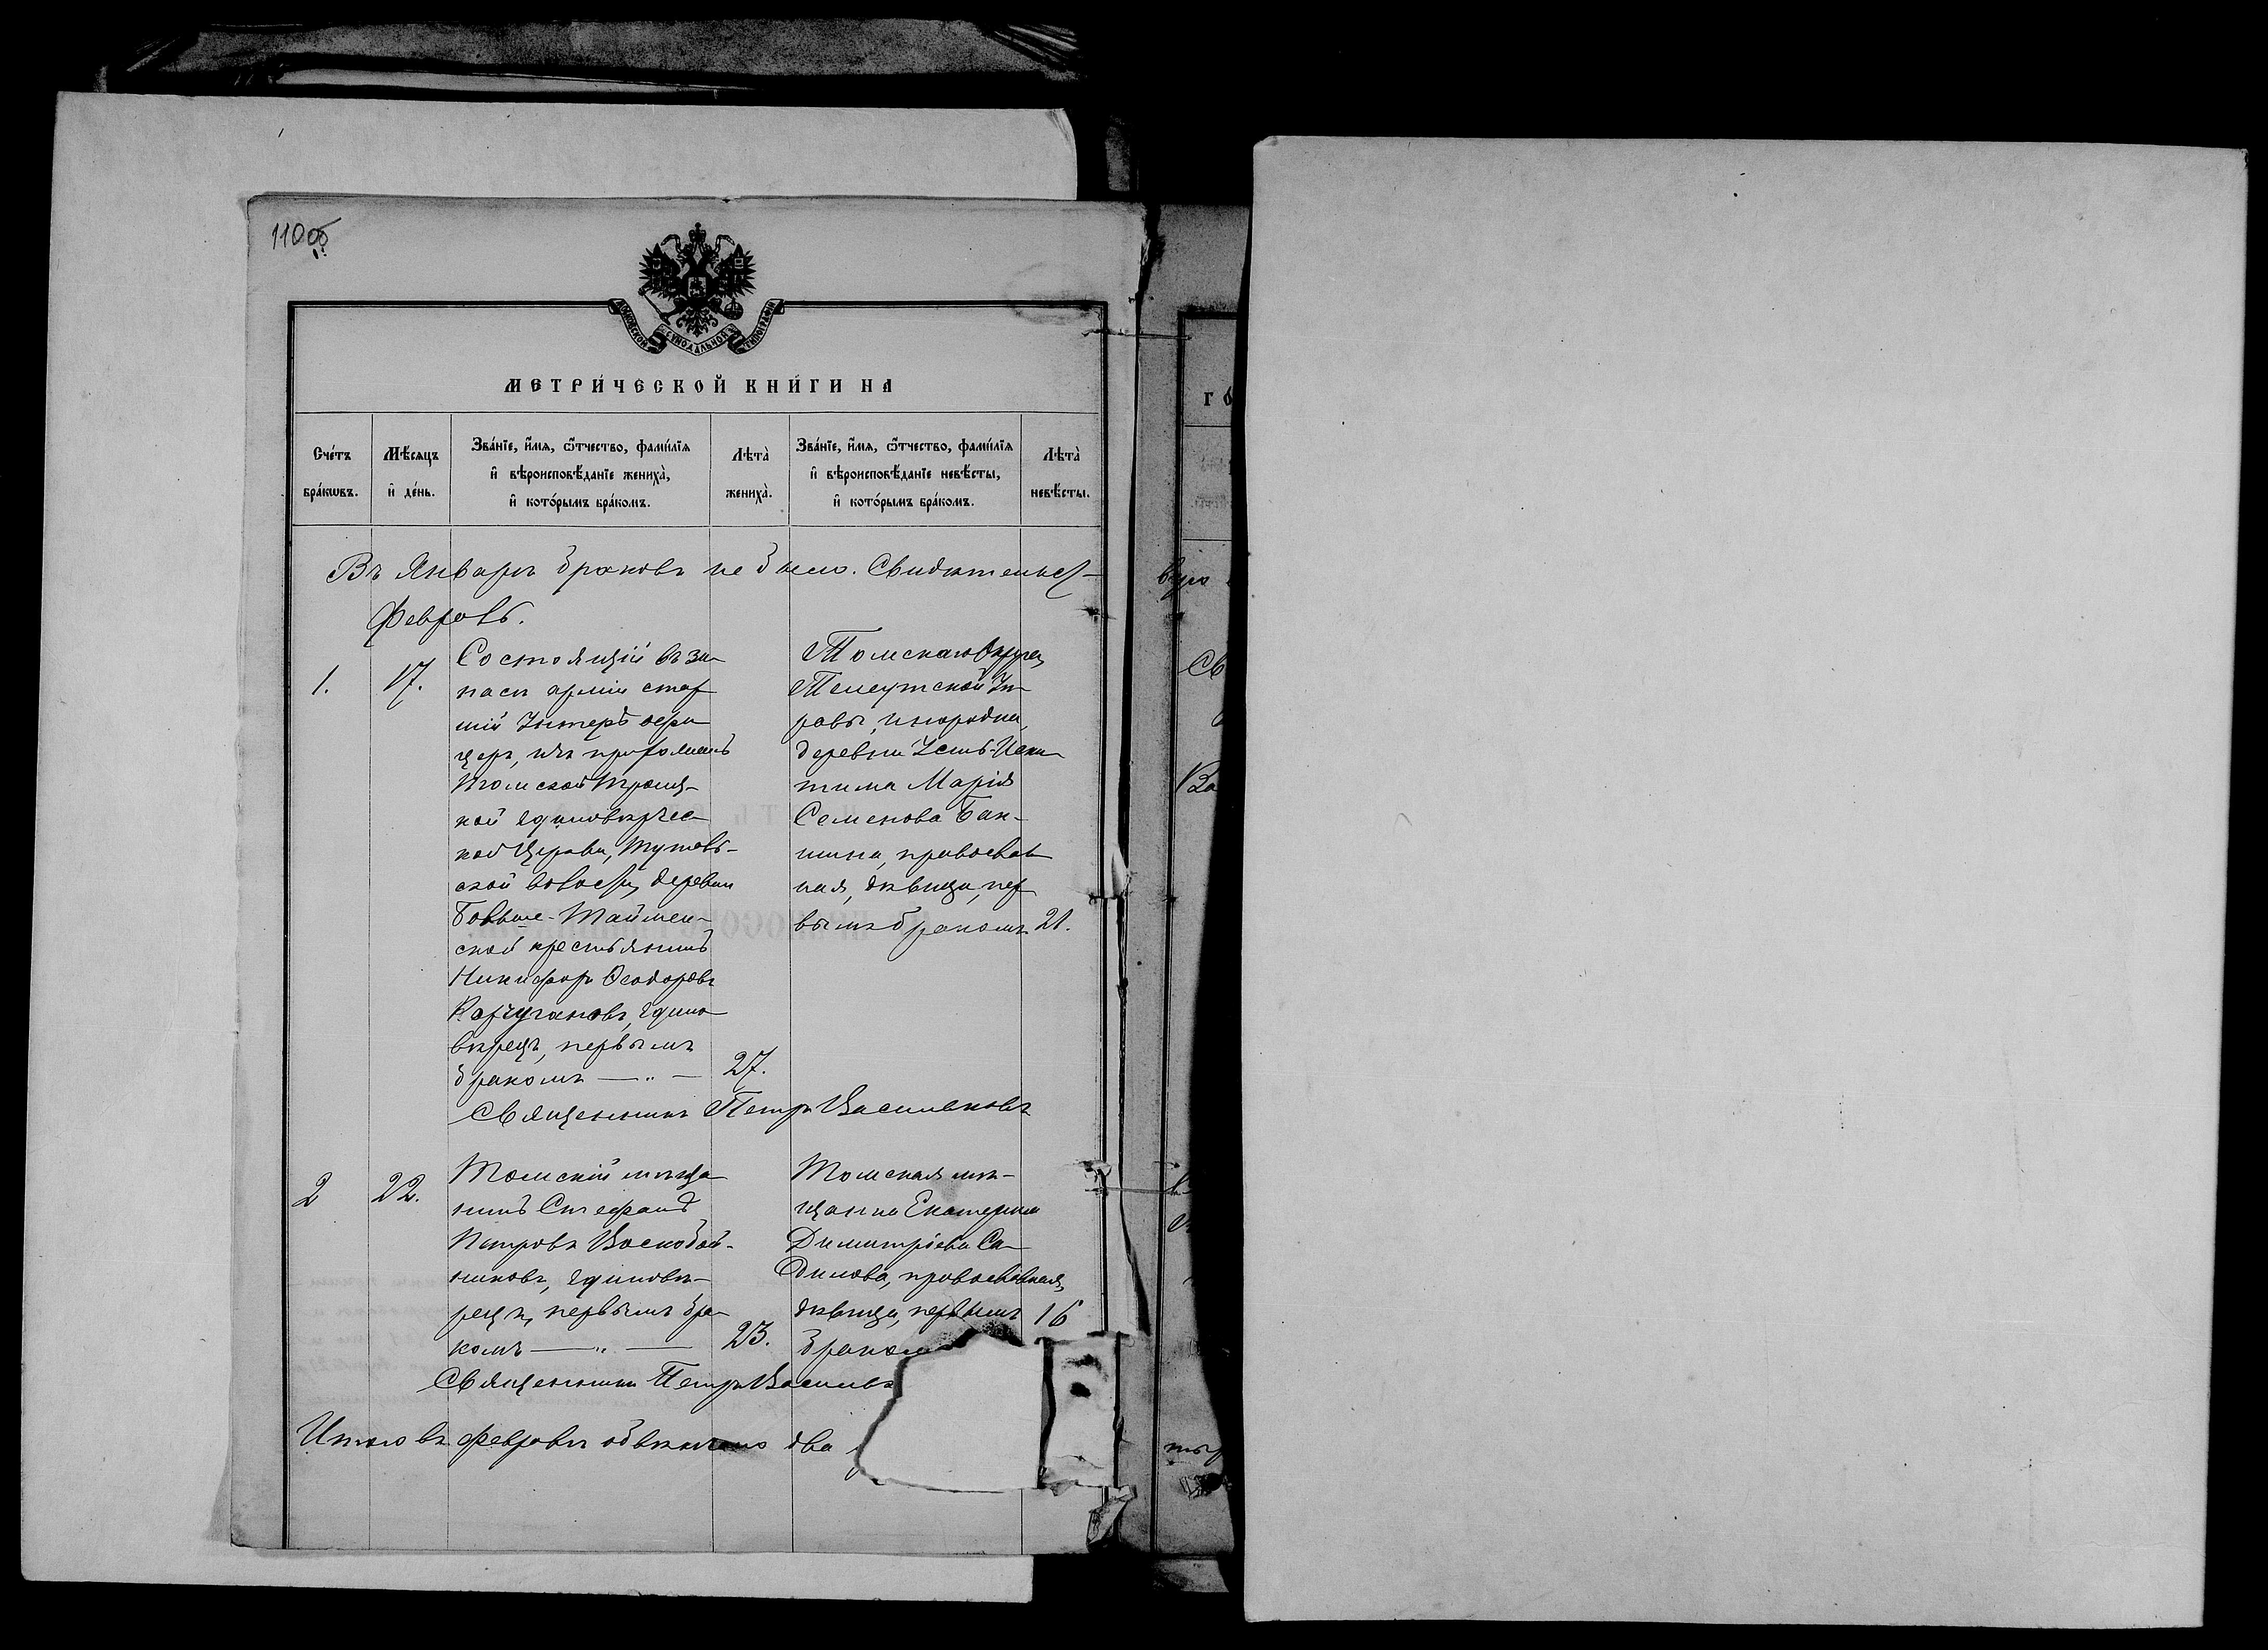 110 об
МОСКОВСКОЙ СѴНОДАЛЬНОЙ ТИПОГРАФІИ
МЕТРИ́ЧЕСКОЙ КНИ́ГИ НА
Сче́тъ бра́кѡвъ.
Мѣ́сяцъ и҆ де́нь.
Зва́нїе, и҆́мя, ѻ҆́тчество, фами́лїя
и҆ вѣроисповѣ́данїе жениха̀,
и҆ кото́рымъ бра́комъ.
Лѣта̀ жениха̀.
Зва́нїе, и҆́мя, ѻ҆́тчество, фами́лїя
и҆ вѣроисповѣ́данїе невѣ́сты,
и҆ кото́рымъ бра́комъ.
Лѣта̀ невѣ́сты.
Въ Январѣ браковъ не было. Свидѣтельст-
Февраль.
1.
17.
Состоящій въ за-
пасѣ арміи стар-
шій Унтеръ офи-
церъ, изъ прихожанъ
Томской Троиц-
кой единовѣрчес-
кой Церкви, Тутале-
ской волости, деревни
Больше-Таймен-
ской крестьянинъ
Никифоръ Ѳеодоровъ
единo-
вѣрецъ, первымъ
бракомъ — „ —
27.
Томскаго Округа,
Телеутской Уп-
равы, инородка,
деревни Усть-Иски-
тима Марія
Семенова Бак-
шина, православ-
ная, дѣвица, пер-
вымъ бракомъ
21.
Священникъ Петръ Васильковъ
2
22.
Томскій мѣща-
нинъ Стефанъ
Петровъ Воскобой-
никовъ, единовѣ-
рецъ, первымъ бра-
комъ — „ —
23.
Томская мѣ-
щанка Екатерина
Димитріева Са-
дилова, православная,
дѣвица, первымъ
бракомъ
16
Священникъ Петръ Васильк
Итого въ Февралѣ обвѣнчано два